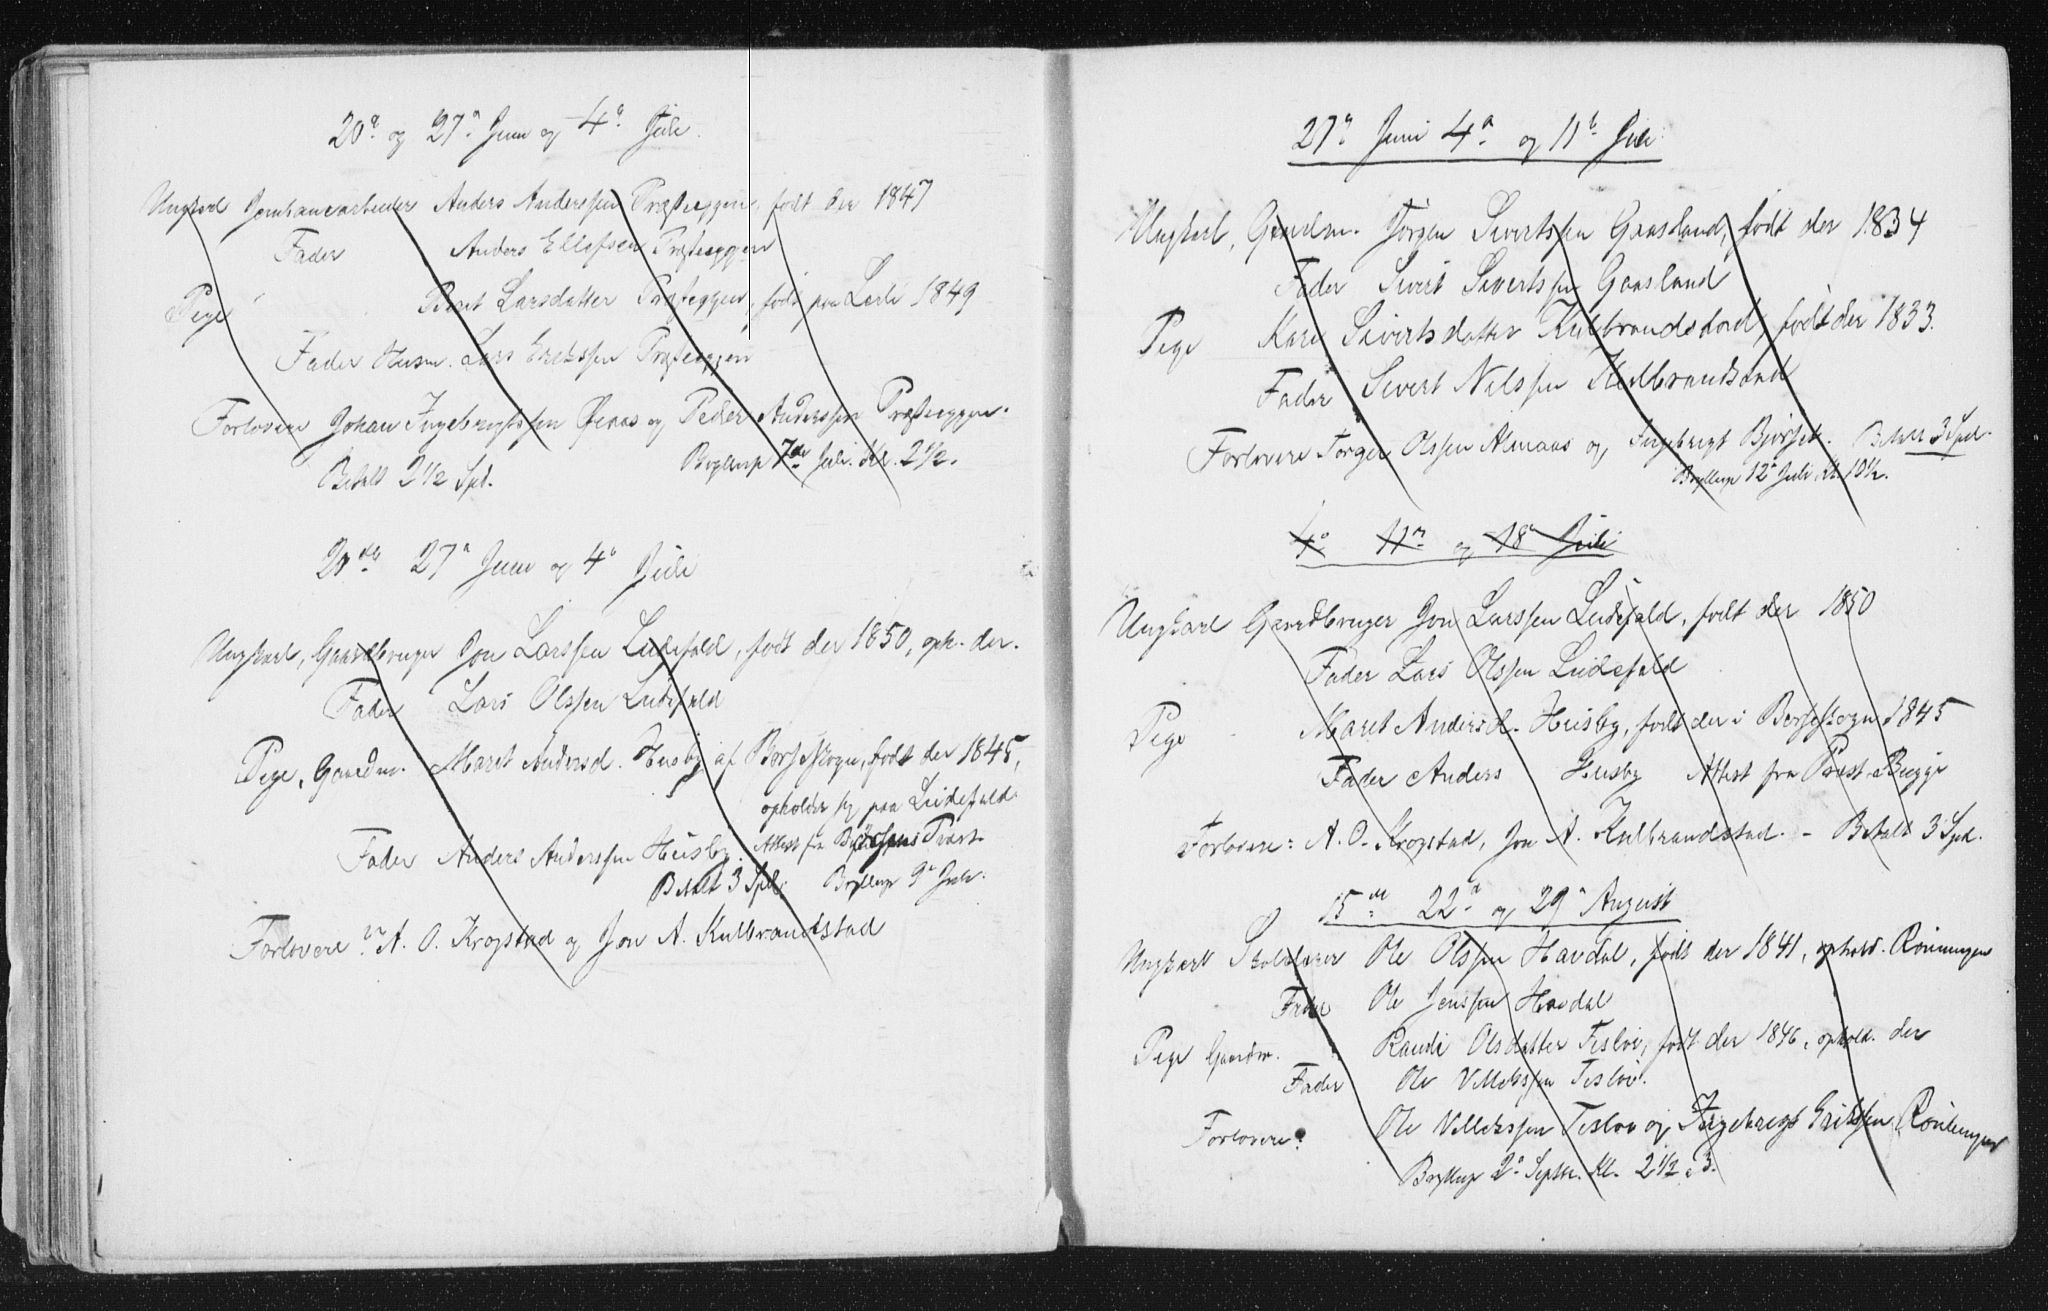 20ᵃ og 27ᵃ Juni og 4ᵃ Juli.
Ungkarl Jernbanearbeider Anders Anderssen Præsteggen, født der 1847
Fader Anders Ellefsen Præsteggen
Pige Beret Larsdatter Præsteggen, født paa 1849
Fader Husm. Lars Erikssen Præsteggen
Forlovere Johan Ingebregtssen Øiaas og Peder Anderssen Præsteggen.
Betalt 2½ Spd. Bryllup 7de Juli. Kl. 2½.
20de 27ᵃ Juni og 4ᵃ Juli
Ungkarl, Gaardbruger Jon Larssen Ludefald, født der 1850, oph. der.
Fader Lars Olssen Ludefald
Pige, Gaardm. Maret Andersd. Husby af Børsesogn, født der 1845,
opholder sig paa Ludefald.
Fader Anders Anderssen Husby. Attest fra Provst
Betalt 3 Spd. Bryllup 9ᵃ Juli.
Forlovere A. O. Krogstad og Jon A. Kulbrandstad
27ᵃ Juni 4ᵃ og 11ᵗᵉ Juli
Ungkarl, Gaardm. Jörgen Sivertssen Gaasland, født der 1834
Fader Sivert Sivertssen Gaasland
Pige Kari Sivertsdatter Kulbrandstad, født der 1833.
Fader Sivert Nilssen Kulbrandstad
Forlovere Torger Olssen Almaas og Ingebrigt Bjørset. Betalt 3 Spd.
Bryllup 12ᵃ Juli Kl. 10½.
4ᵃ 11ᵃ og 18ᵃ Juli
Ungkarl Gaardbruger Jon Larssen Ludefald, født der 1850
Fader Lars Olssen Ludefald
Pige Maret Andersd. Husby, født der i Børsesogn 1845
Fader Anders Husby Attest fra Provst Bugge
Forlovere: A. O. Krogstad, Jon A. Kulbrandstad. – Betalt 3 Spd.
15de 22ᵃ og 29ᵃ August
Ungkarl Skolelærer Ole Olssen Havdal, født der 1841, ophold. Röningen
Fader Ole Jenssen Havdal
Pige Gaardm. Randi Olsdatter Teslöi, født der 1846, ophold. der
Fader Ole Villekssen Teslöi.
Forlovere: Ole Villekssen Teslöi og Ingebregt Erikssen Röningen
Bryllup 2ᵃ Septbr. Kl. 2½ à 3.